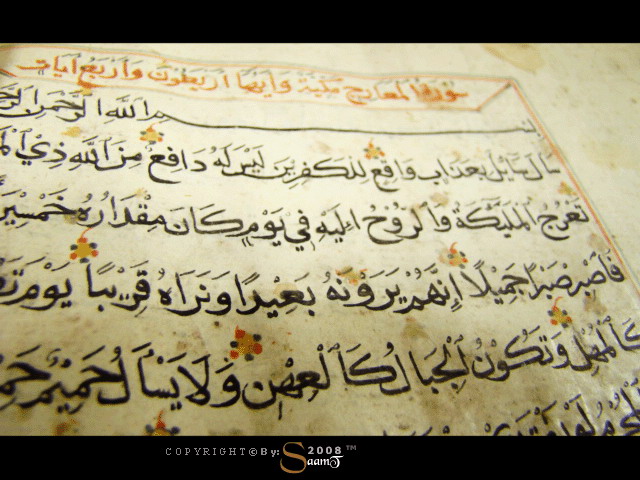 سورة المعارج مكية وآيها اربعون واربع آيات
بسم الله الرحمن الرحـ
سَأَلَ سَائِلٌ بِعَذَابٍ وَاقِعٍ لِلْكَفِرِينَ لَيْسَ لَهُ دَافِعٌ مِنَ اللَّهِ ذِي الْمَـ
تَعْرُجُ الْمَلَئِكَةُ وَالرُّوحُ إِلَيْهِ فِي يَوْمٍ كَانَ مِقْدَارُهُ خَمْسِينَ
فَاصْبِرْ صَبْرًا جَمِيلًا إِنَّهُمْ يَرَوْنَهُ بَعِيدًا وَنَرَاهُ قَرِيبًا يَوْمَ تَكُـ
كَالْمُهْلِ وَتَكُونُ الْجِبَالُ كَالْعِهْنِ وَلَا يَسْأَلُ حَمِيمٌ حَمِـ
COPYRIGHT © By: Saam 2008 ™